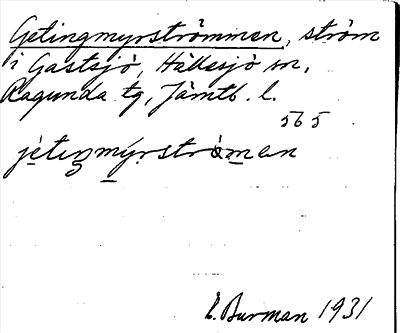 Getingmyrströmmen, ström
i Gastsjö, Hällesjö sn,
Ragunda tg, Jämtl. l.
565
jètiŋmýrströmen
E. Burman 1931